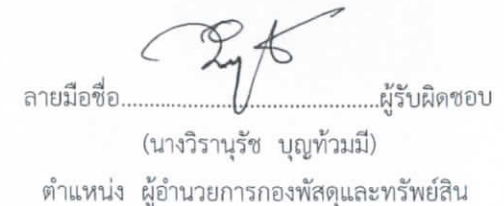 ลายมือชื่อ............................................ผู้รับผิดชอบ
(นางวิรานุรัช บุญท้วมมี)
ตำแหน่ง ผู้อำนวยการกองพัสดุและทรัพย์สิน